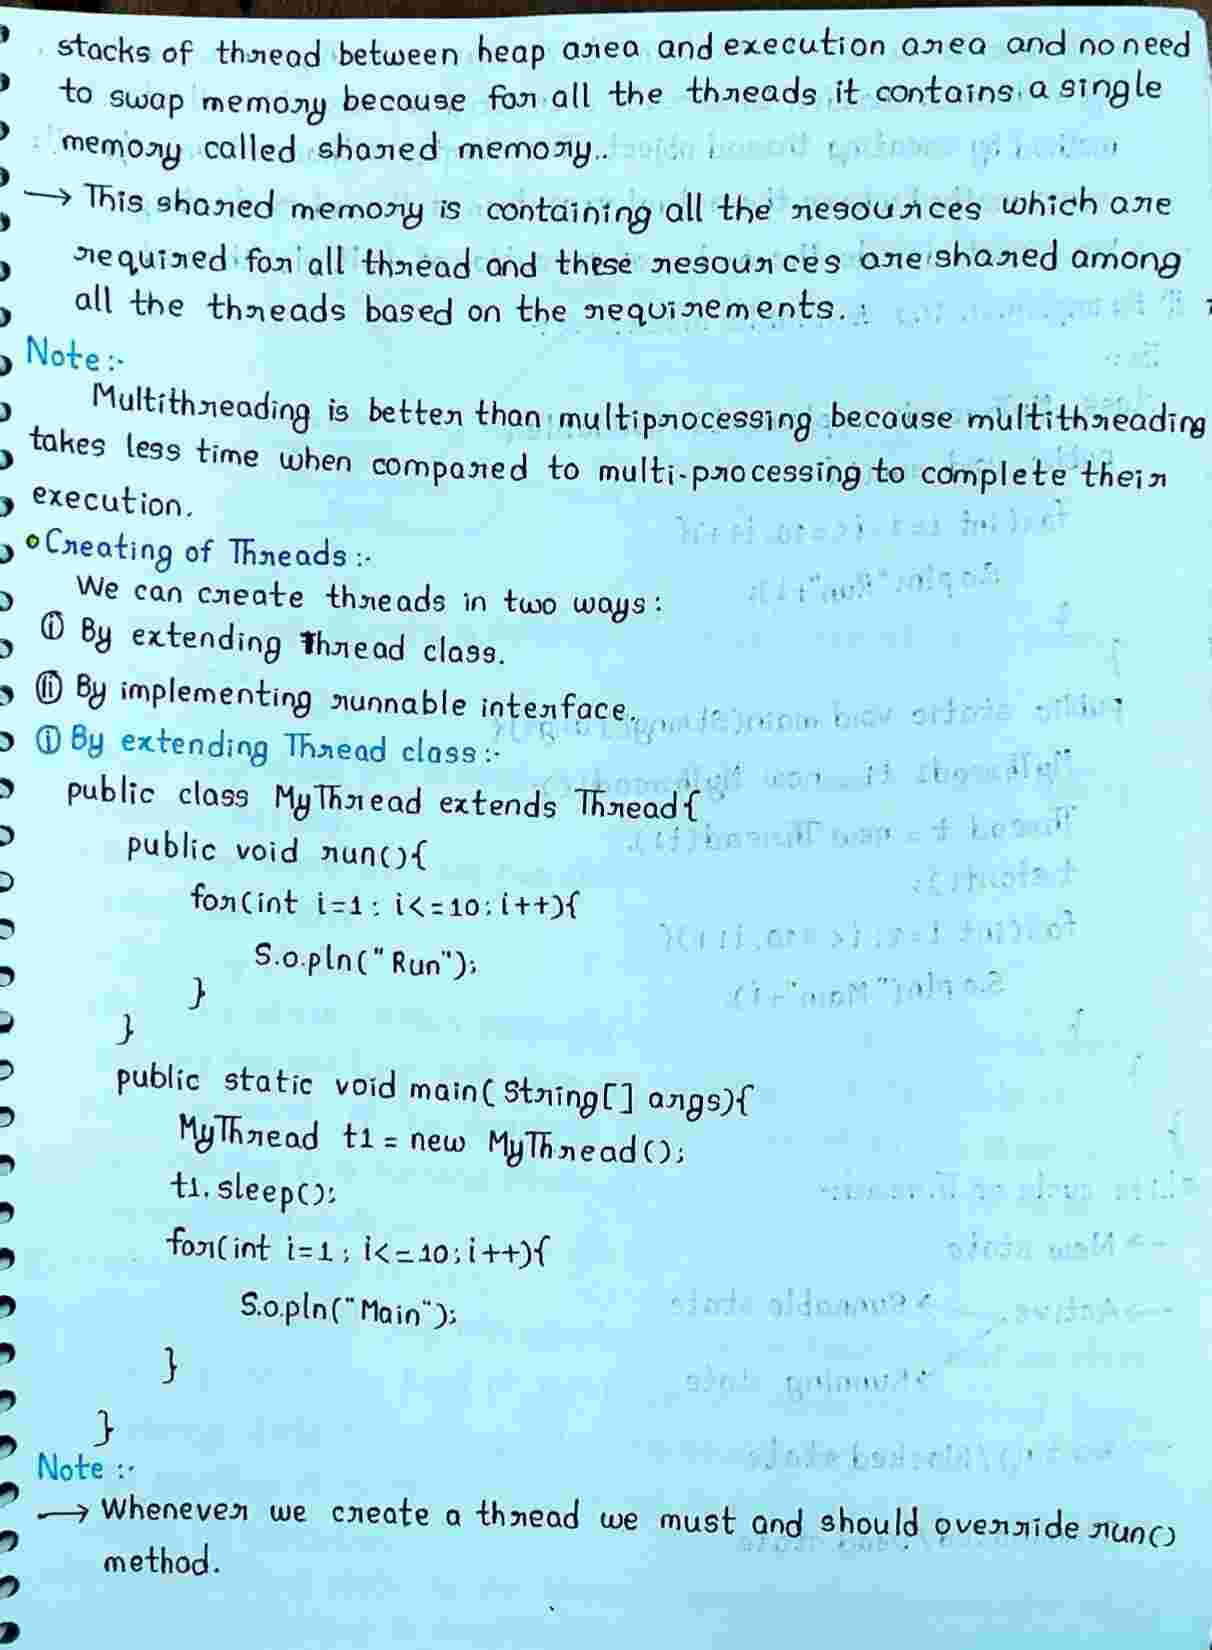 stacks of thread between heap area and execution area and no need
to swap memory because for all the threads it contains a single
memory called shared memory..
→ This shared memory is containing all the resources which are
required for all thread and these resources are shared among
all the threads based on the requirements.
Note:-
Multithreading is better than multiprocessing because multithreading
takes less time when compared to multi-processing to complete their
execution.
• Creating of Threads:-
We can create threads in two ways:
(i) By extending Thread class.
(ii) By implementing runnable interface.
(i) By extending Thread class:-
public class MyThread extends Thread{
public void run(){
for(int i=1; i<=10; i++){
S.o.pln("Run");
}
}
public static void main(String[] args){
MyThread t1 = new MyThread();
t1.sleep();
for(int i=1; i<=10; i++){
S.o.pln("Main");
}
}
Note:-
→ Whenever we create a thread we must and should override run()
method.